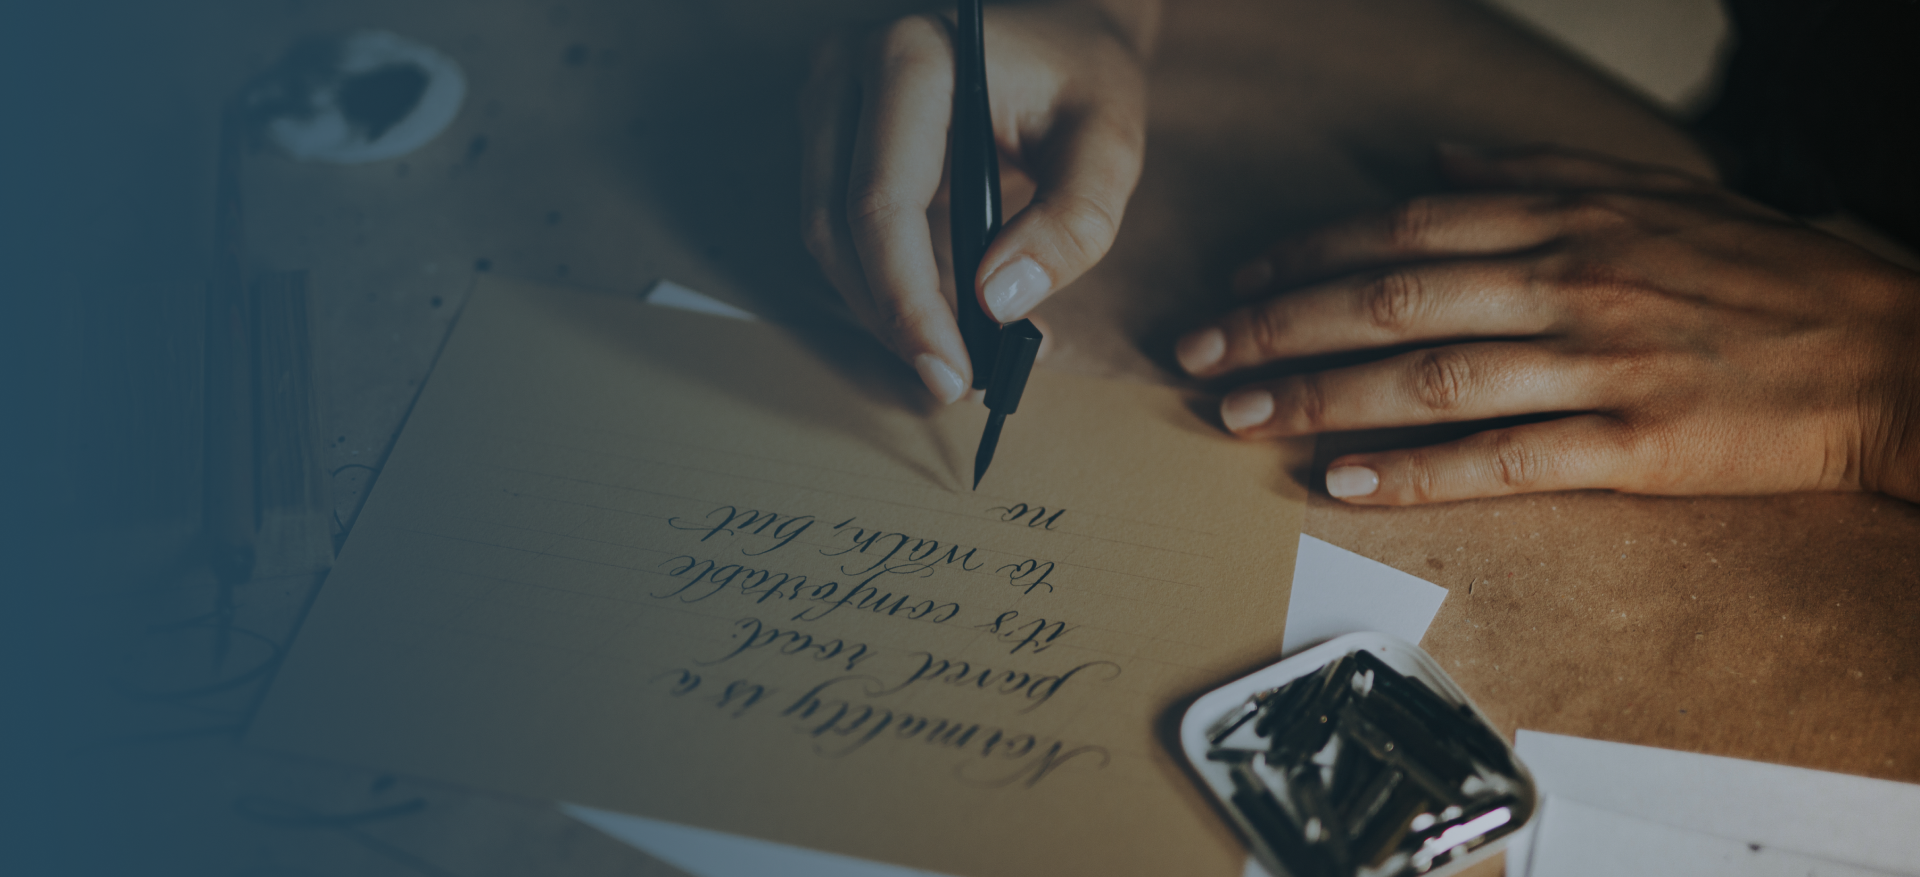 Normality is a
paved road:
it's comfortable
to walk, but
no